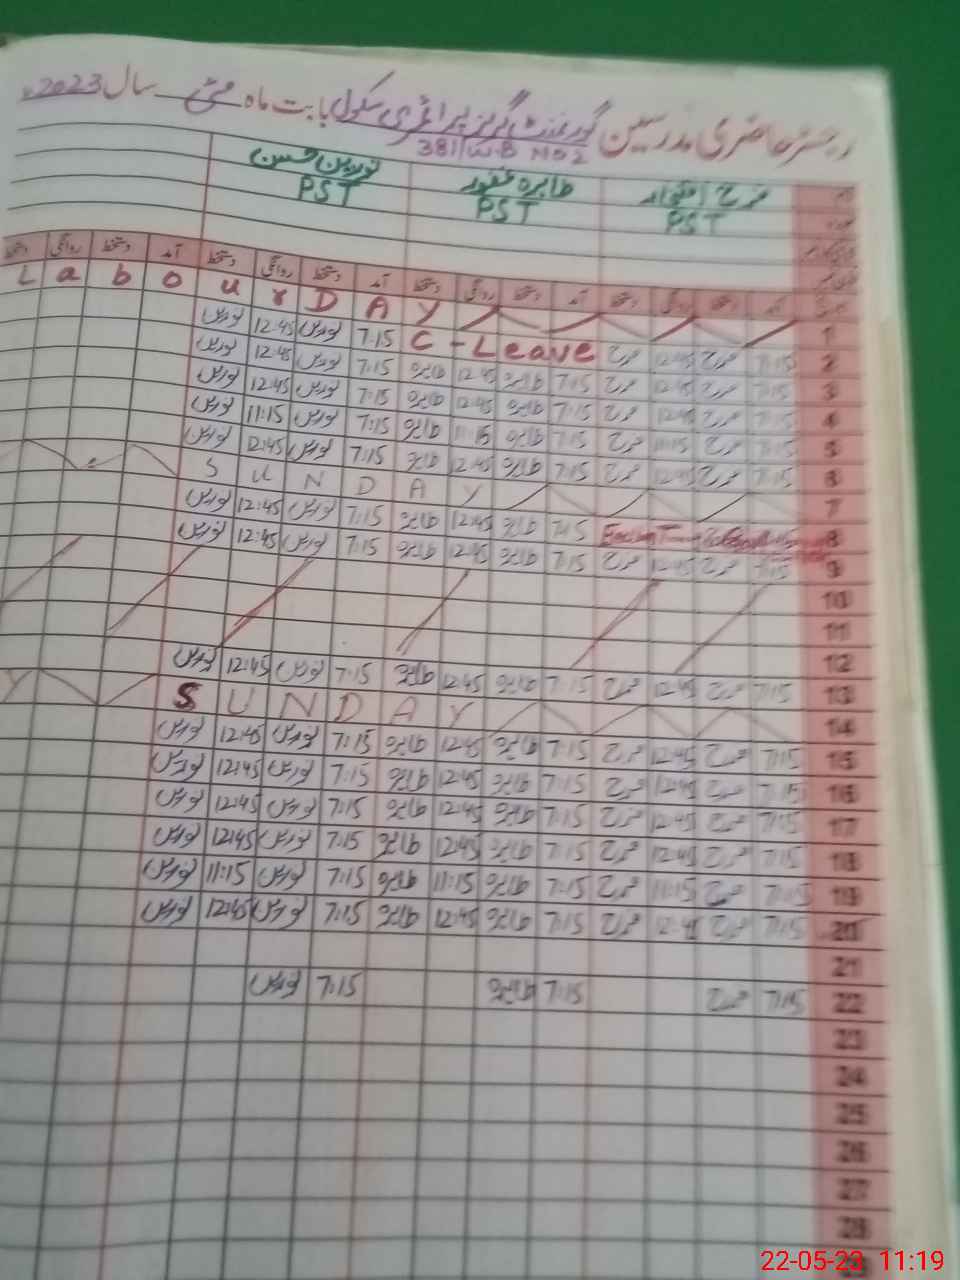 رجسٹر حاضری مدرسین گورنمنٹ گرلز پرائمری سکول بابت ماہ مئی سال 2023ء
381/W.B NO 2
فرح طاہرہ غفور نورین حسین
PST PST PST
آمد دستخط روانگی دستخط آمد دستخط روانگی دستخط آمد دستخط روانگی دستخط آمد دستخط روانگی دستخط
1 L a b o u r D A Y
2 7:15 فرح 12:45 فرح C - Leave 7:15 نورین 12:45 نورین
3 7:15 فرح 12:45 فرح 7:15 طاہرہ 12:45 طاہرہ 7:15 نورین 12:45 نورین
4 7:15 فرح 12:45 فرح 7:15 طاہرہ 12:45 طاہرہ 7:15 نورین 12:45 نورین
5 7:15 فرح 11:15 فرح 7:15 طاہرہ 11:15 طاہرہ 7:15 نورین 11:15 نورین
6 7:15 فرح 12:45 فرح 7:15 طاہرہ 12:45 طاہرہ 7:15 نورین 12:45 نورین
7 S U N D A Y
8 7:15 طاہرہ 12:45 طاہرہ 7:15 نورین 12:45 نورین
9 7:15 فرح 12:45 فرح 7:15 طاہرہ 12:45 طاہرہ 7:15 نورین 12:45 نورین
10
11
12
13 7:15 فرح 12:45 فرح 7:15 طاہرہ 12:45 طاہرہ 7:15 نورین 12:45 نورین
14 S U N D A Y
15 7:15 فرح 12:45 فرح 7:15 طاہرہ 12:45 طاہرہ 7:15 نورین 12:45 نورین
16 7:15 فرح 12:45 فرح 7:15 طاہرہ 12:45 طاہرہ 7:15 نورین 12:45 نورین
17 7:15 فرح 12:45 فرح 7:15 طاہرہ 12:45 طاہرہ 7:15 نورین 12:45 نورین
18 7:15 فرح 12:45 فرح 7:15 طاہرہ 12:45 طاہرہ 7:15 نورین 12:45 نورین
19 7:15 فرح 11:15 فرح 7:15 طاہرہ 11:15 طاہرہ 7:15 نورین 11:15 نورین
20 7:15 فرح 12:45 فرح 7:15 طاہرہ 12:45 طاہرہ 7:15 نورین 12:45 نورین
21
22 7:15 فرح 7:15 طاہرہ 7:15 نورین
23
24
25
26
27
28
29
22-05-23 11:19